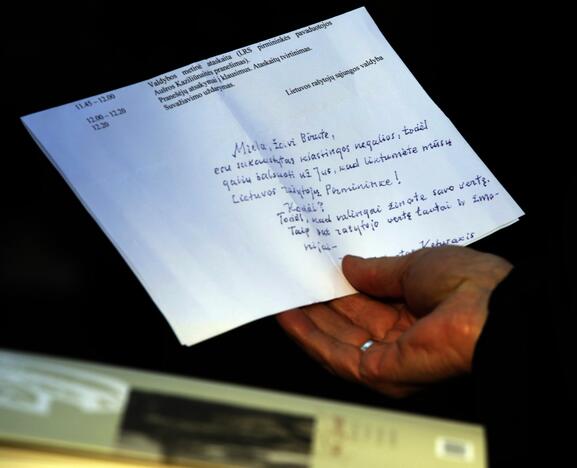 11.45 – 12.00 Valdybos metinė ataskaita (LRS pirmininkės pavaduotojos
Aušros Kaziliūnaitės pranešimas).
12.00 – 12.20 Pranešėjų atsakymai į klausimus. Ataskaitų tvirtinimas.
12.20 Suvažiavimo uždarymas.
Lietuvos rašytojų sąjungos valdyba
Miela, žavi Birute,
esu sukaustytas klastingos negalios, todėl
galiu balsuoti už Jus, kad liktumėte mūsų
Lietuvos rašytojų Pirmininke!
Kodėl?
Todėl, kad valingai žinote savo vertę.
Taip pat rašytojo vertę tautai ir žmo-
nijai-